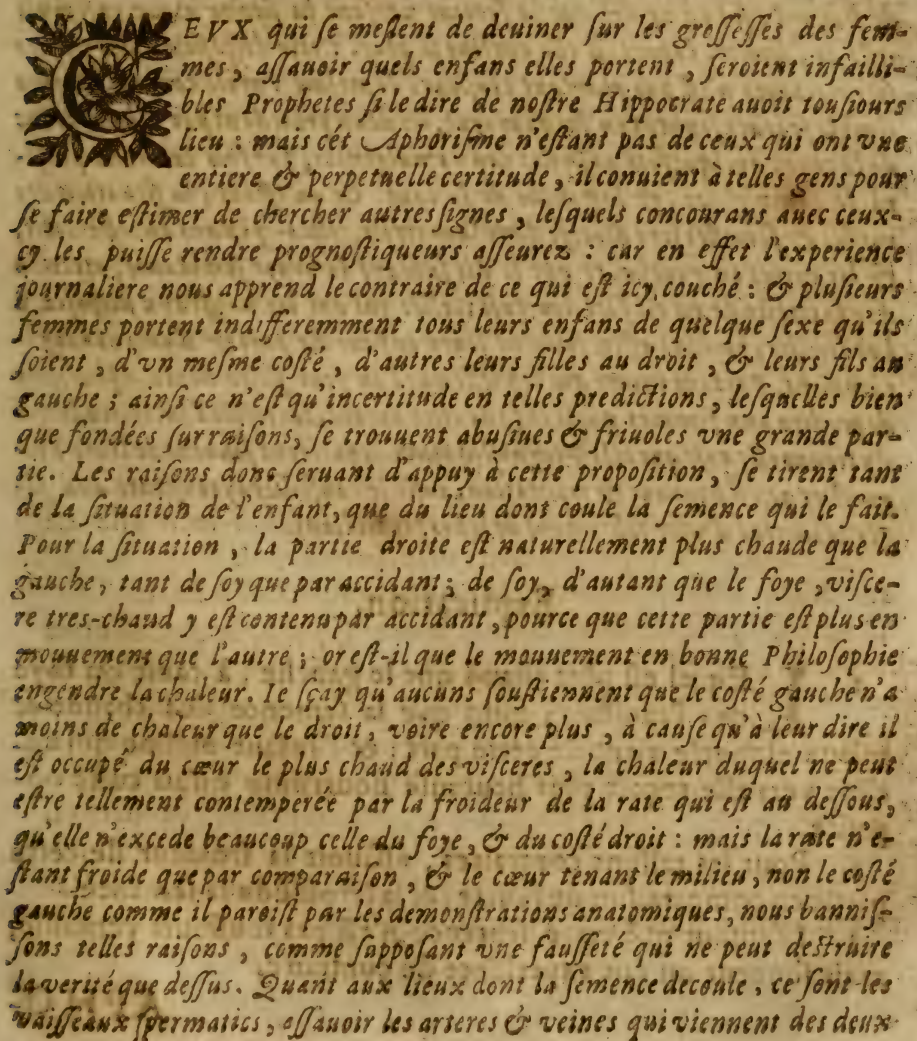 CEVX qui ſe meſlent de deuiner ſur les greſſeſſes des fem-
mes, aſſauoir quels enfans elles portent, ſeroient infailli-
bles Prophetes ſi le dire de noſtre Hippocrate auoit touſiours
lieu : mais cét Aphoriſme n'eſtant pas de ceux qui ont vne
entiere & perpetuelle certitude, il conuient à telles gens pour
ſe faire eſtimer de chercher autres ſignes, leſquels concourans auec ceux-
cy les puiſſe rendre prognoſtiqueurs aſſeurez : car en effet l'experience
journaliere nous apprend le contraire de ce qui eſt icy couché : & pluſieurs
femmes portent indifferemment tous leurs enfans de quelque ſexe qu'ils
ſoient, d'vn meſme coſté, d'autres leurs filles au droit, & leurs fils au
gauche ; ainſi ce n'eſt qu'incertitude en telles predictions, leſquelles bien
que fondées ſur raiſons, ſe trouuent abuſiues & friuoles vne grande par-
tie. Les raiſons donc ſeruant d'appuy à cette propoſition, ſe tirent tant
de la ſituation de l'enfant, que du lieu dont coule la ſemence qui le fait.
Pour la ſituation, la partie droite eſt naturellement plus chaude que la
gauche, tant de ſoy que par accidant ; de ſoy, d'autant que le foye, viſce-
re tres-chaud y eſt contenu par accidant, pource que cette partie eſt plus en
mouuement que l'autre ; or eſt-il que le mouuement en bonne Philoſophie
engendre la chaleur. Ie ſçay qu'aucuns ſouſtiennent que le coſté gauche n'a
moins de chaleur que le droit, voire encore plus, à cauſe qu'à leur dire il
eſt occupé du cœur le plus chaud des viſceres, la chaleur duquel ne peut
eſtre tellement contemperée par la froideur de la rate qui eſt au deſſous,
qu'elle n'excede beaucoup celle du foye, & du coſté droit : mais la rate n'e-
ſtant froide que par comparaiſon, & le cœur tenant le milieu, non le coſté
gauche comme il paroiſt par les demonſtrations anatomiques, nous banniſ-
ſons telles raiſons, comme ſuppoſant vne fauſſeté qui ne peut deſtruire
la verité que deſſus. Quant aux lieux dont la ſemence decoule, ce ſont les
vaiſſeaux ſpermatics, aſſauoir les arteres & veines qui viennent des deux